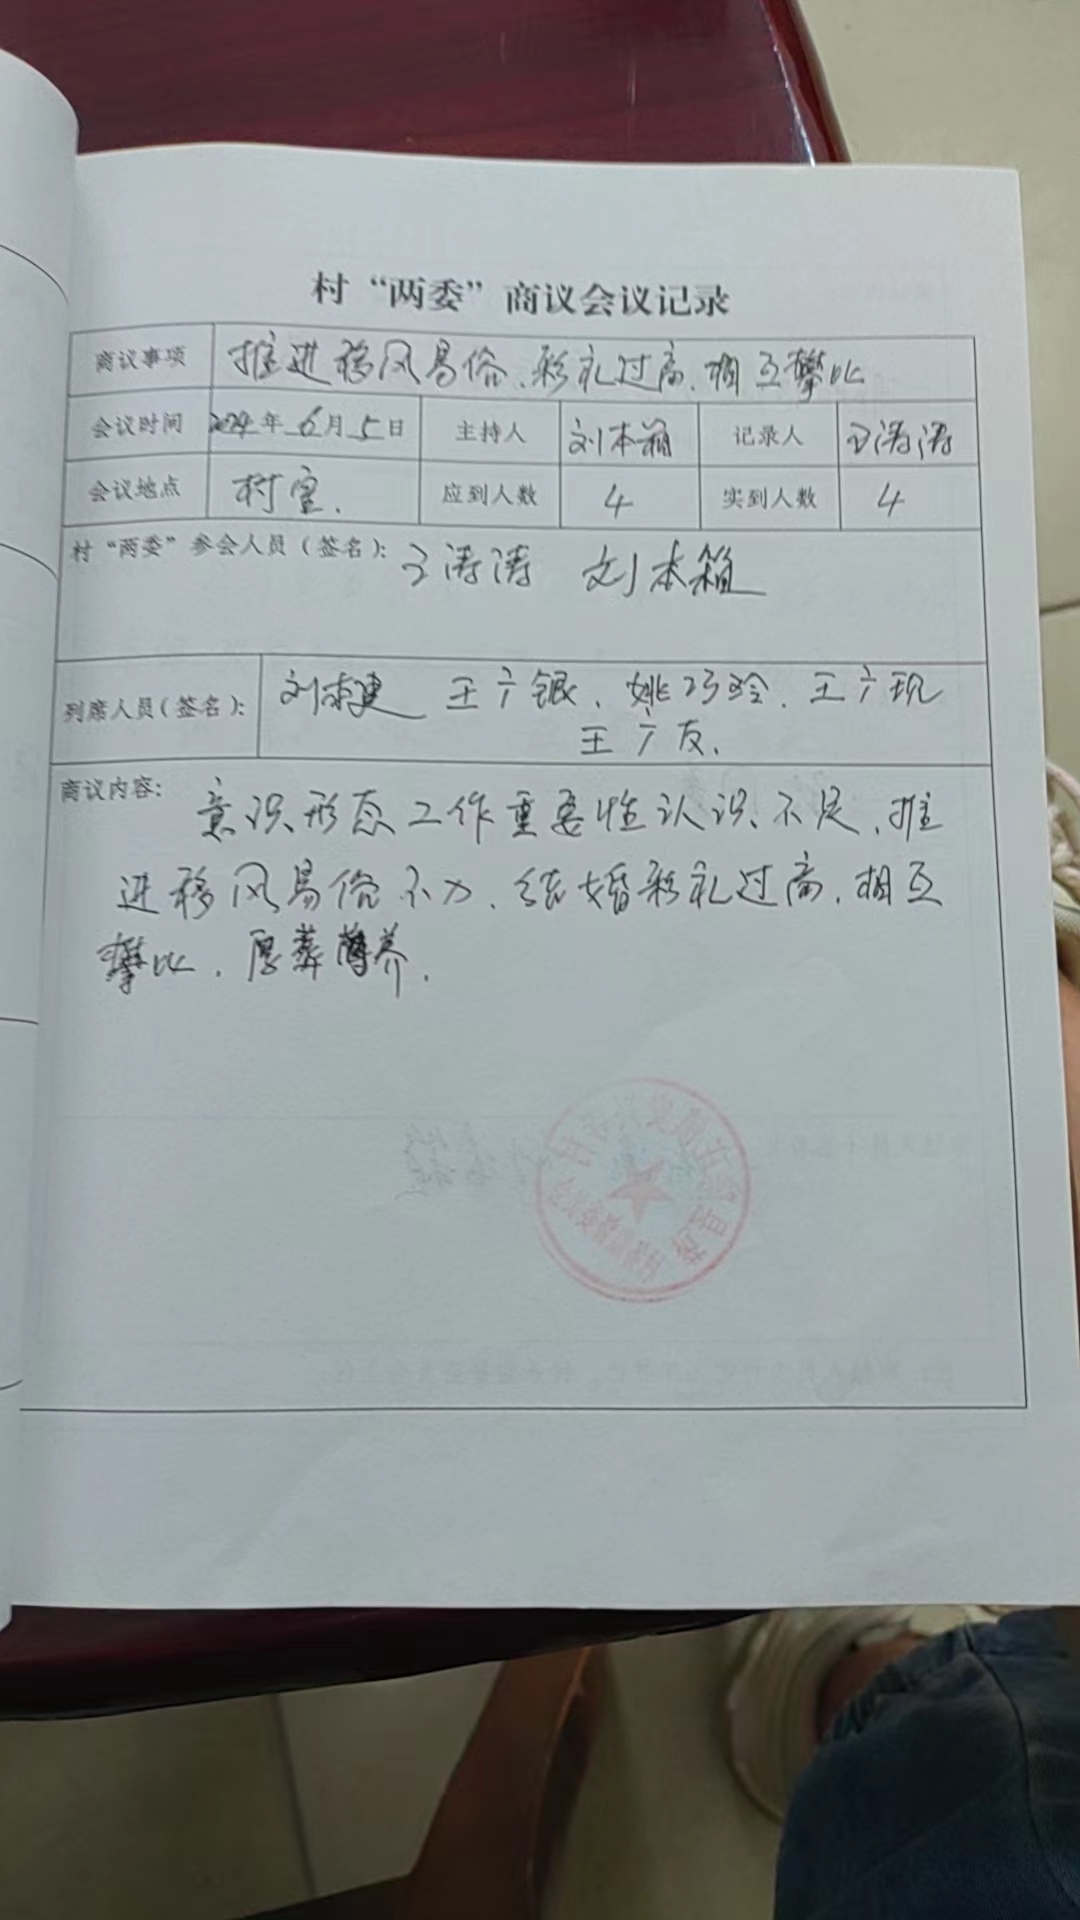 村“两委”商议会议记录
商议事项 推进移风易俗、彩礼过高、相互攀比
会议时间 2024年6月5日 主持人 刘本箱 记录人 王涛涛
会议地点 村室. 应到人数 4 实到人数 4
村“两委”参会人员（签名）： 王涛涛 刘本箱
列席人员（签名）： 刘建 王广银、姚巧玲、王广现
王广友.
商议内容： 意识形态工作重要性认识不足、推
进移风易俗不力、结婚彩礼过高、相互
攀比、厚葬薄养.